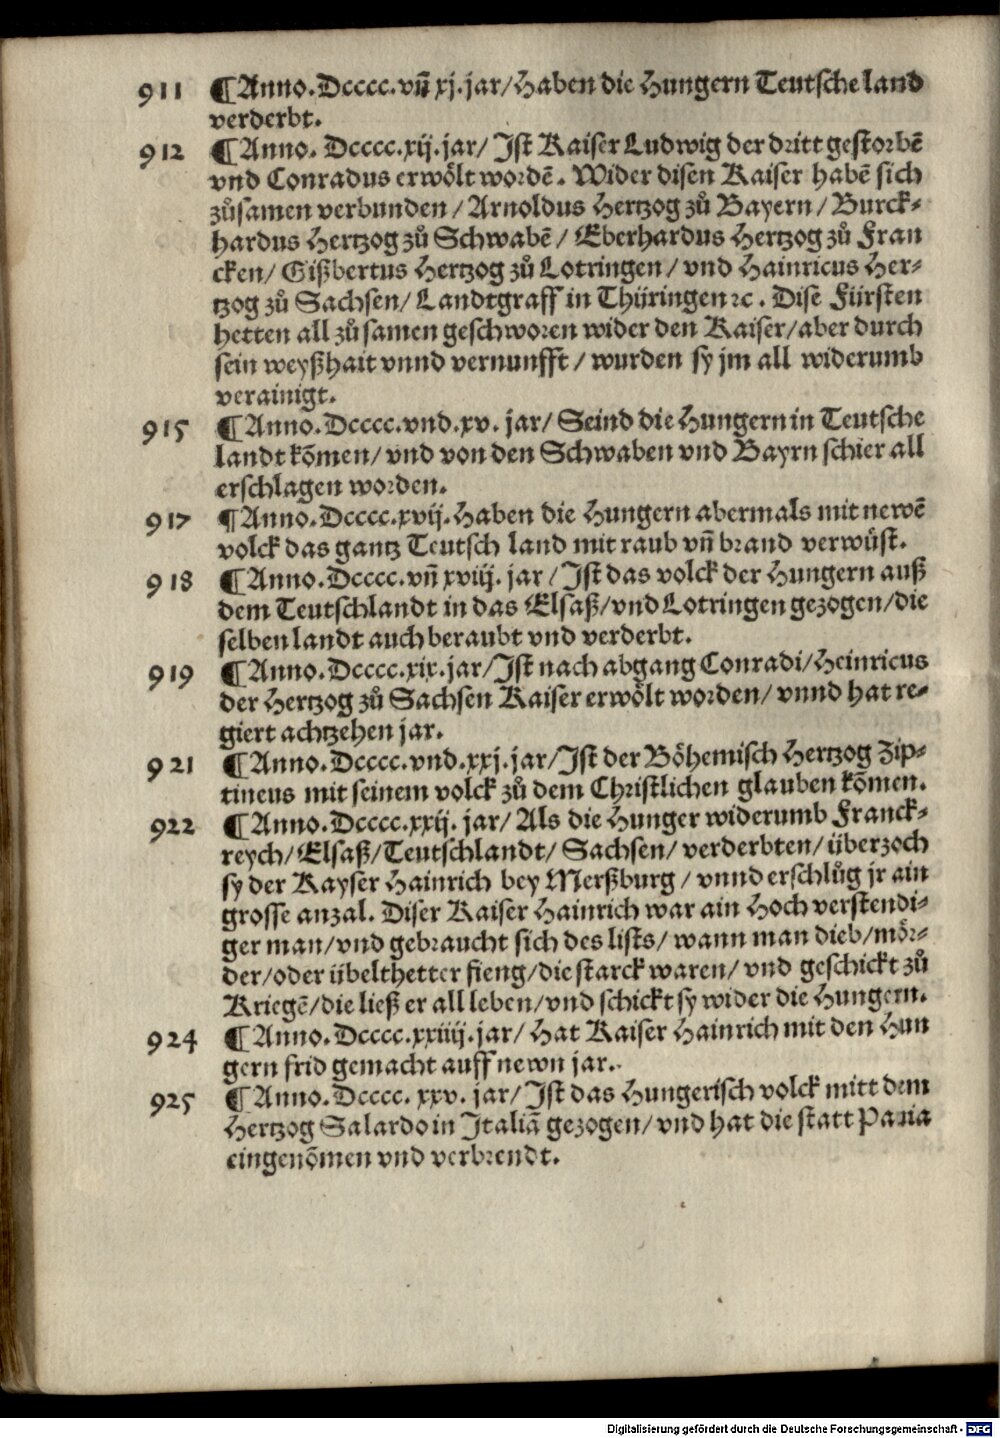 911 ¶Anno.Dcccc.vn̄ xj.jar/Haben die Hungern Teutsche land
verderbt.
912 ¶Anno. Dcccc.xij.jar/ Jst Kaiser Ludwig der dritt gestorbē
vnd Conradus erwoͤlt wordē. Wider disen Kaiser habē sich
zuͦsamen verbunden/Arnoldus Hertzog zuͦ Bayern/Burck-
hardus Hertzog zuͦ Schwabē/ Eberhardus Hertzog zuͦ Fran
cken/ Gißbertus Hertzog zuͦ Lotringen/ vnd Hainricus Her-
tzog zuͦ Sachsen/ Landtgraff in Thüringen ꝛc. Dise Fürsten
hetten all zuͦ samen geschworen wider den Kaiser/aber durch
sein weyßhait vnnd vernunfft/ wurden sy jm all widerumb
verainigt.
915 ¶Anno.Dcccc.vnd.xv. jar/ Seind die Hungern in Teutsche
landt kōmen/ vnd von den Schwaben vnd Bayrn schier all
erschlagen worden.
917 ¶Anno.Dcccc.xvij.Haben die Hungern abermals mit newē
volck das gantz Teutsch land mit raub vn̄ brand verwuͤst.
918 ¶Anno.Dcccc.vn̄ xviij. jar/Jst das volck der Hungern auß
dem Teutschlandt in das Elsaß/vnd Lotringen gezogen/die
selben landt auch beraubt vnd verderbt.
919 ¶Anno.Dcccc.xix.jar/Jst nach abgang Conradi/Heinricus
der Hertzog zuͦ Sachsen Kaiser erwoͤlt worden/ vnnd hat re-
giert achtzehen jar.
921 ¶Anno.Dcccc.vnd.xxj.jar/Jst der Boͤhemisch Hertzog Zip-
tineus mit seinem volck zuͦ dem Christlichen glauben kōmen.
922 ¶Anno.Dcccc.xxij. jar/ Als die Hunger widerumb Franck-
reych/Elsaß/Teutschlandt/ Sachsen/ verderbten/ überzoch
sy der Kayser Hainrich bey Merßburg/ vnnd erschluͦg jr ain
grosse anzal. Diser Kaiser Hainrich war ain Hoch verstendi-
ger man/vnd gebraucht sich des lists/ wann man dieb/moͤr-
der/oder übelthetter fieng/die starck waren/ vnd geschickt zuͦ
Kriegē/die ließ er all leben/vnd schickt sy wider die Hungern.
924 ¶Anno.Dcccc.xxiiij.jar/ Hat Kaiser Hainrich mit den Hun
gern frid gemacht auff newn jar.
925 ¶Anno.Dcccc. xxv. jar/Jst das Hungerisch volck mitt dem
Hertzog Salardo in Jtaliā gezogen/vnd hat die statt Pauia
eingenōmen vnd verbrendt.
Digitalisierung gefördert durch die Deutsche Forschungsgemeinschaft - DFG